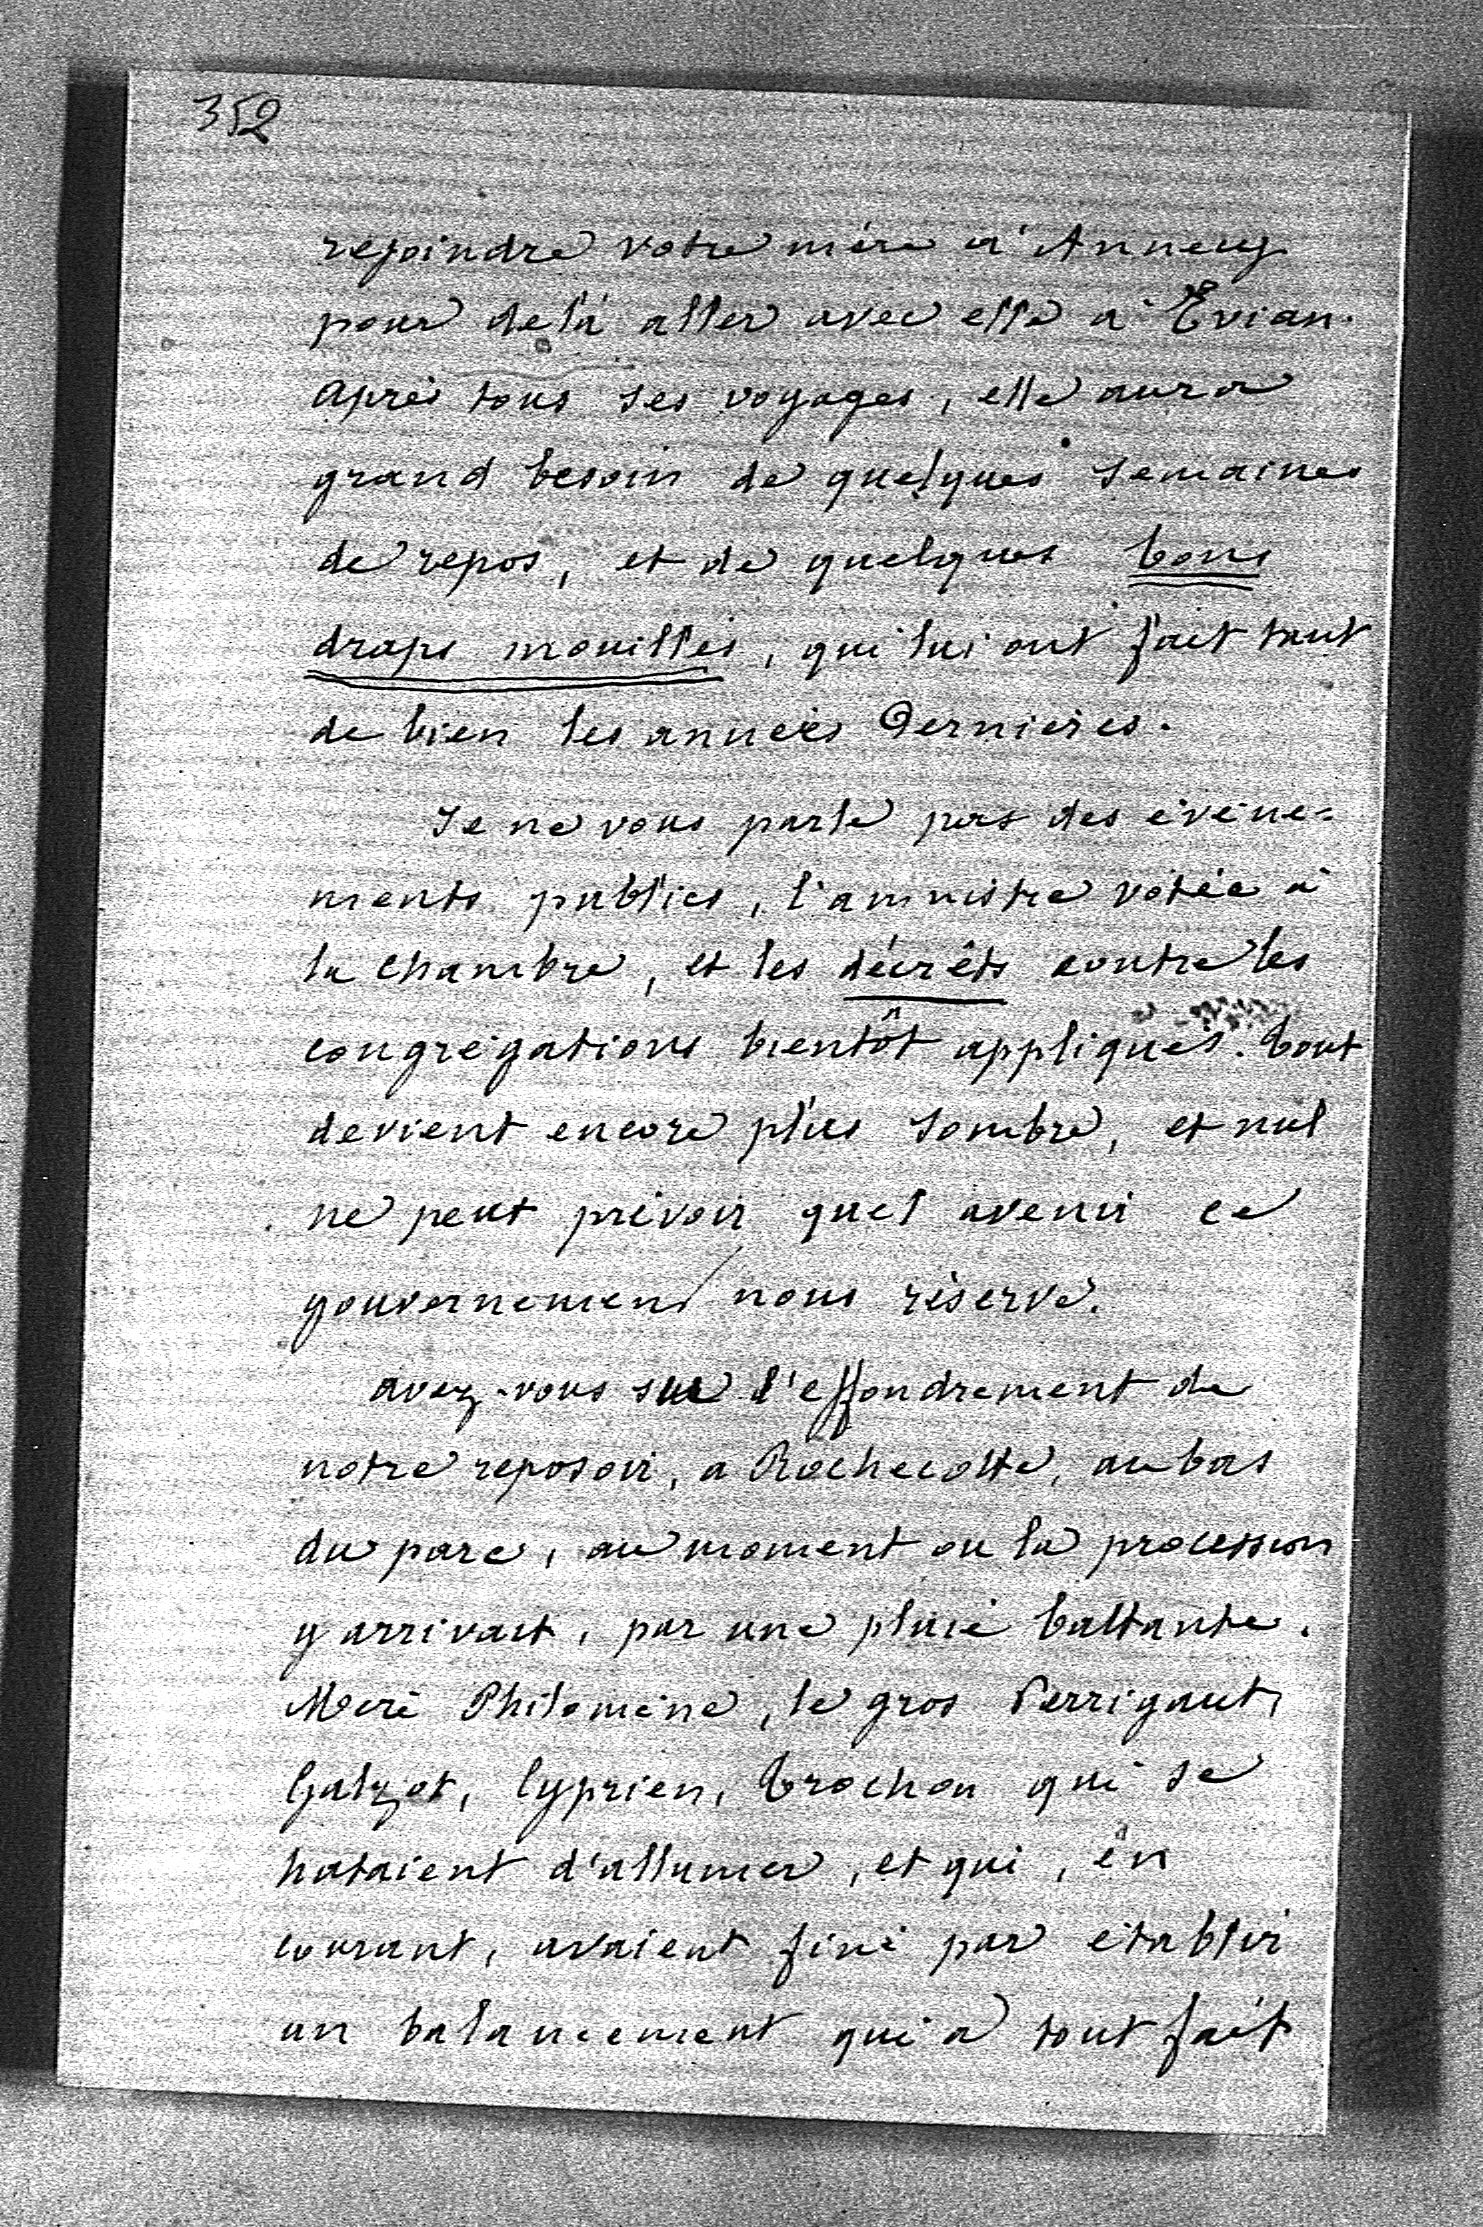 352
rejoindre votre mère à Annecy
pour delà aller avec elle à Evian.
après tous ses voyages, elle aura
grand besoin de quelques semaines
de repos, et de quelques bons
draps mouillés, qui lui ont fait tant
de bien les années dernières.
Je ne vous parle pas des évène=
ments publics, l'amnistie votée à
la chambre, et les décrêts contre les
congrégations bientôt appliqués. tout
devient encore plus sombre, et nul
ne peut prévoir quel avenir ce
gouvernement nous réserve.
avez-vous sue l'effondrement de
notre reposoir, a Rochecotte, au bas
du parc, au moment ou la procession
y arrivait, par une pluie battante.
Mère Philomène, le gros Perrigaut,
Galzot, Cyprien, Trochon qui se
hataient d'allumer, et qui, en
courant, avaient fini par établir
un balancement qui a tout fait